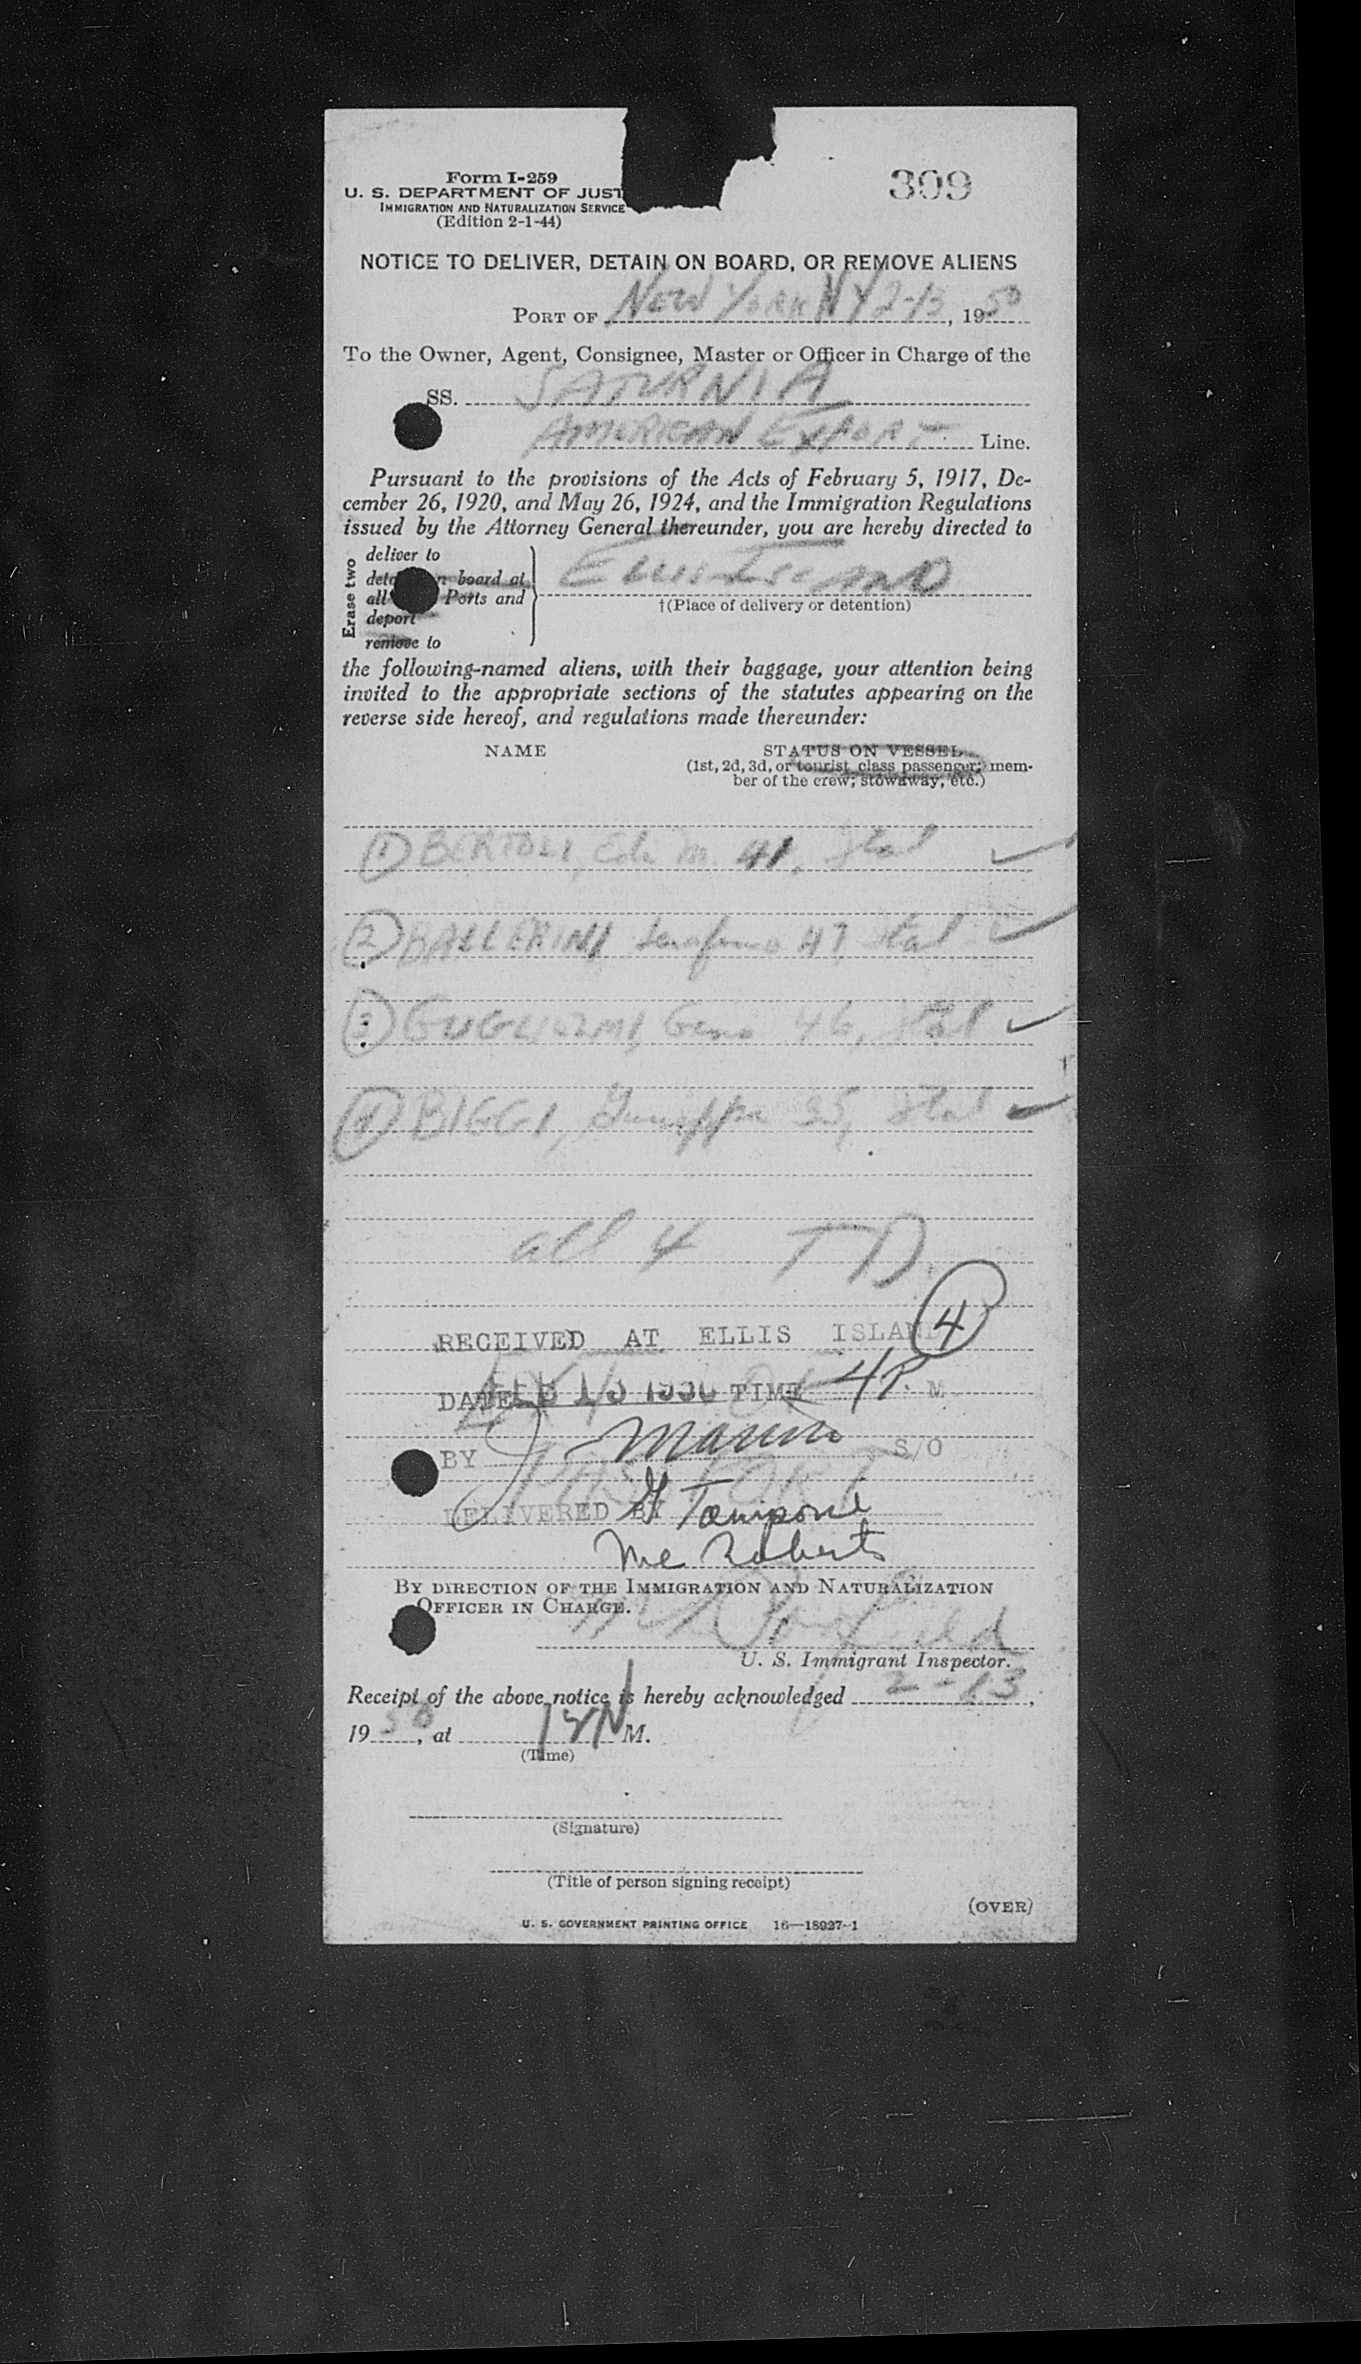 309
Form I-259
U. S. DEPARTMENT OF JUST
IMMIGRATION AND NATURALIZATION SERVICE
(Edition 2-1-44)
NOTICE TO DELIVER, DETAIN ON BOARD, OR REMOVE ALIENS
PORT OF NEW YORK NY 2-13, 1950
To the Owner, Agent, Consignee, Master or Officer in Charge of the
SS. SATURNIA
AMERICAN EXPORT Line.
Pursuant to the provisions of the Acts of February 5, 1917, De-
cember 26, 1920, and May 26, 1924, and the Immigration Regulations
issued by the Attorney General thereunder, you are hereby directed to
Erase two
deliver to
board at
all Ports and
deport
remove to
ELLIS ISLAND
†(Place of delivery or detention)
the following-named aliens, with their baggage, your attention being
invited to the appropriate sections of the statutes appearing on the
reverse side hereof, and regulations made thereunder:
NAME STATUS ON VESSEL
(1st, 2d, 3d, or tourist class passenger; mem-
ber of the crew; stowaway, etc.)
1 BERTOLI, M. 41, Ital
2 BALLERINI Serafino 47 Ital
3 GUGLIELMI, Gino 46, Ital
4 BIGGI, Giuseppe 35, Ital
all 4 TD
RECEIVED AT ELLIS ISLAND 4
DATE FEB 13 1950 TIME 4P. M
BY Marino S/O
DELIVERED BY
Mc Roberts
BY DIRECTION OF THE IMMIGRATION AND NATURALIZATION
OFFICER IN CHARGE.
U. S. Immigrant Inspector.
Receipt of the above notice is hereby acknowledged 2-13,
1950, at 12N M.
(Time)
(Signature)
(Title of person signing receipt)
(OVER)
U. S. GOVERNMENT PRINTING OFFICE 16—18927-1